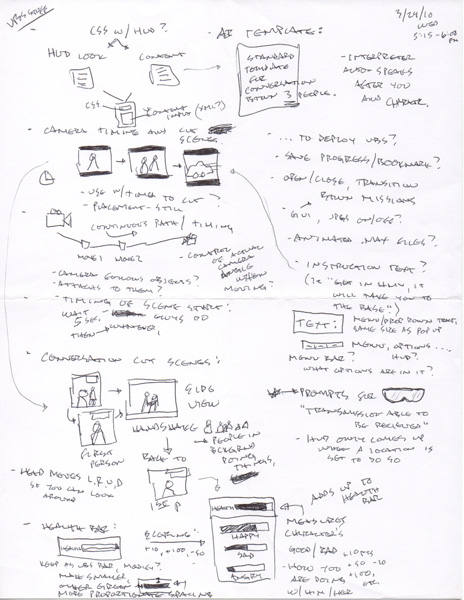 VBS GUIDE
3/24/10
WED
5:15-6:00 PM
- CSS W/ HUD?
HUD LOOK
CONTENT
CSS
CONTENT INPUT (XML?)
- AI TEMPLATE:
STANDARD
TEMPLATE
FOR
CONVERSATION
BTWN 3 PEOPLE.
- INTERPRETER
AUTO-SPEAKS
AFTER YOU
AND CHARACTER.
- CAMERA TIMING AND CUT
SCENES.
- USE W/TIMER TO CUT?
- PLACEMENT-STILL
CONTINUOUS PATH/TIMING
NODE1 NODE2
- CONTROL
OF ACTUAL
CAMERA
ANGLE
WHEN
MOVING?
- CAMERA FOLLOWS OBJECTS?
- ATTACHES TO THEM?
- TIMING OF SCENE START:
WAIT
5 SEC,
GUYS DO
THEN WHATEVER,
- ... TO DEPLOY VBS?
- SAVE PROGRESS/BOOKMARK?
- OPEN/CLOSE, TRANSITION
BTWN MISSIONS
- GUI, VBS ON/OFF?
- ANIMATED .MAX FILES?
- INSTRUCTION TEXT?
(IE "GET IN HMMV, IT
WILL TAKE YOU TO
THE BASE")
TEXT:
MENU/DROP DOWN TEXT,
SAME SIZE AS POP UP
MENU, OPTIONS...
MENU BAR?
HUD?
WHAT OPTIONS ARE IN IT?
PROMPTS FOR
"TRANSMISSION ABLE TO
BE RECEIVED"
- HUD ONLY COMES UP
WHEN A LOCATION IS
SET TO DO SO
- CONVERSATION CUT SCENES:
SIDE
VIEW
HANDSHAKE
FIRST
PERSON
PEOPLE IN
BCKGRND
DOING
THINGS,
BACK TO
1ST P
- HEAD MOVES L,R,U,D
SO YOU CAN LOOK
AROUND
- HEALTH BAR:
HEALTH
SCORING:
+10, +100, -50
KEEP AS VBS BAR, MODIFY?
MAKE SMALLER,
MAKE GREEN
MORE PROPORTIONATE SPACING
HEALTH
HAPPY
SAD
ANGRY
ADDS UP TO
HEALTH
BAR
MEASURES
CHARACTER'S
GOOD/BAD
- HOW YOU
ARE DOING
W/HIM/HER
+50 -20
+100,
ETC.